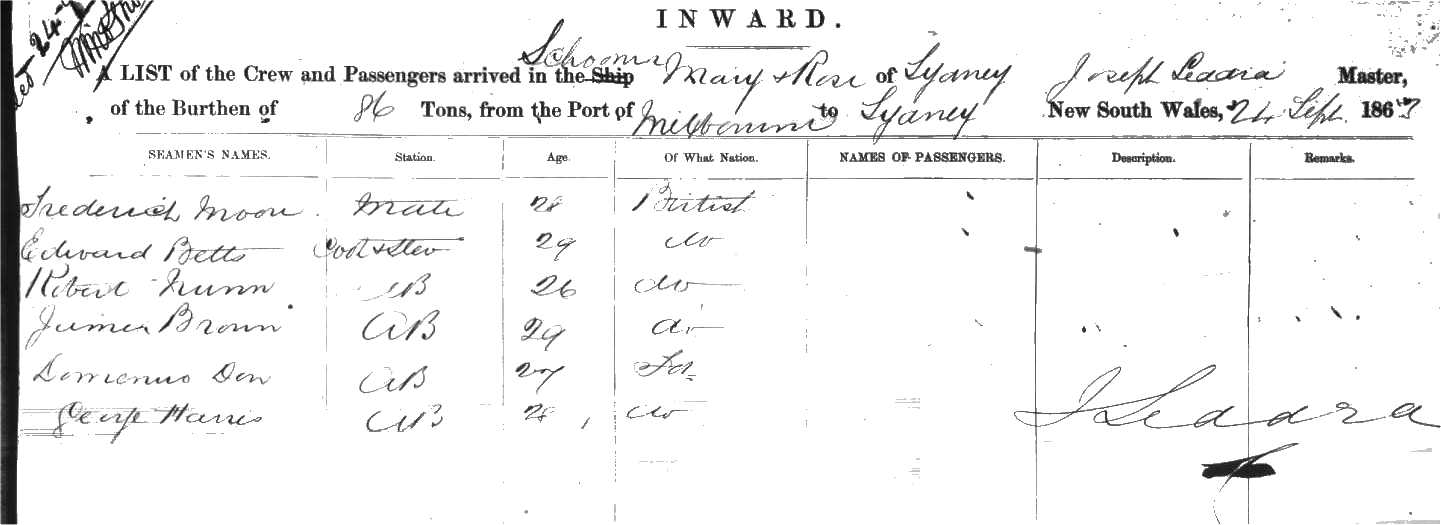 INWARD.
A LIST of the Crew and Passengers arrived in the Ship Schooner Mary & Rose of Sydney Joseph Leddra Master,
of the Burthen of 86 Tons, from the Port of Melbourne to Sydney New South Wales, 24 Sept. 1863
SEAMEN'S NAMES. Station. Age. Of What Nation. NAMES OF PASSENGERS. Description. Remarks.
Frederick Moon. Mate 28 British
Edward Betts Cook & Stew 29 do
Robert Nunn AB 26 do
James Brown AB 29 do
Don AB 27 For
George Harris AB 28 do
J Leddra